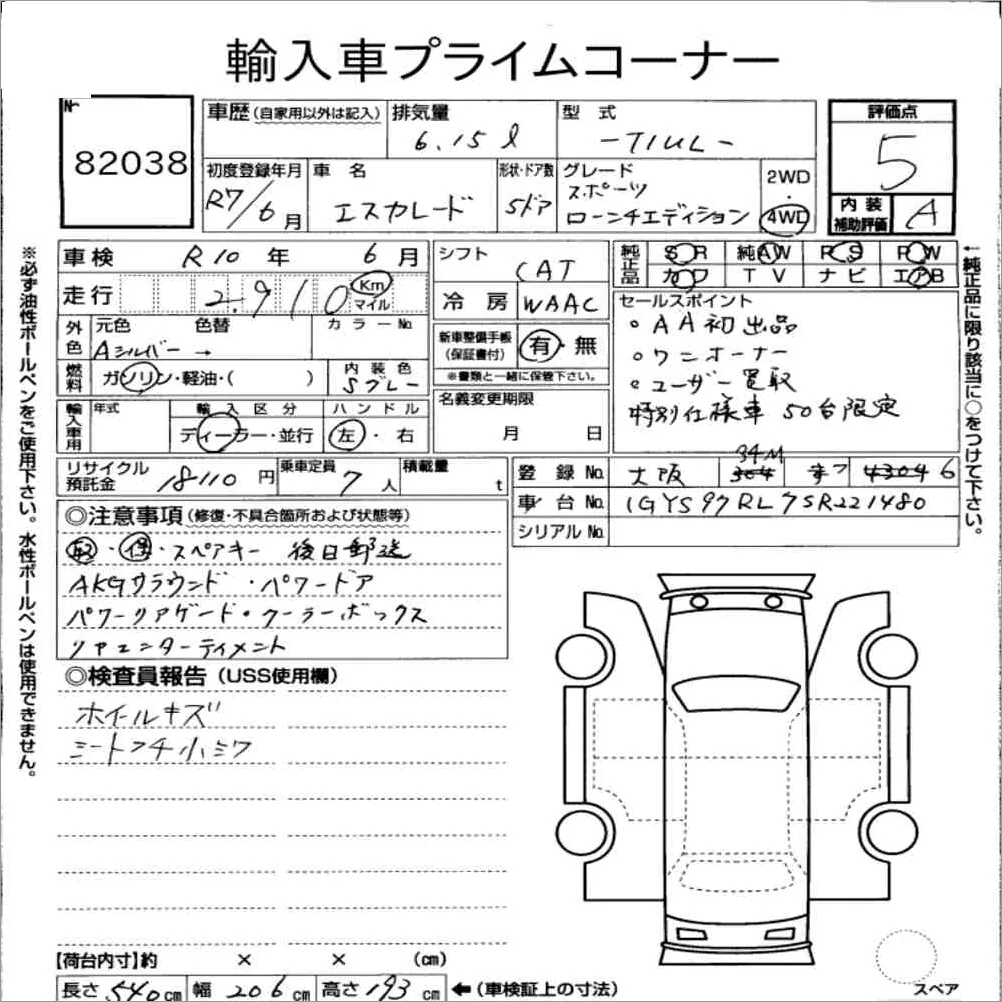 輸入車プライムコーナー
No
82038
車歴(自家用以外は記入)
排気量
6.15ℓ
型式
-T1UL-
評価点
5
初度登録年月
R7/6月
車名
エスカレード
形状・ドア数
5ドア
グレード
スポーツ
ローンチエディション
2WD
・
4WD
内装
補助評価
A
車検 R10年 6月
走行 2,910 Km
マイル
外色
元色 色替
Aシルバー→
カラーNo.
燃料
ガソリン・軽油・( )
内装色
Sグレー
輸入車用
年式
輸入区分
ディーラー・並行
ハンドル
左・右
シフト
CAT
冷房
WAAC
新車整備手帳
(保証書付)
有・無
※書類と一緒に保管下さい。
名義変更期限
月 日
純正品
SR 純AW PS PW
カワ TV ナビ エアB
セールスポイント
・AA初出品
・ワンオーナー
・ユーザー買取
特別仕様車 50台限定
リサイクル
預託金
18110円
乗車定員
7人
積載量
t
登録No.
大阪
34M
304
4304 6
車台No.
1GYS97RL7SR221480
シリアルNo.
◎注意事項(修復・不具合箇所および状態等)
取・保・スペアキー 後日郵送
AKGサラウンド・パワードア
パワーリアゲート・クーラーボックス
リアエンターテイメント
◎検査員報告(USS使用欄)
ホイールキズ
シートフチ小シワ
【荷台内寸】約 × × (cm)
長さ540cm 幅206cm 高さ193cm
←(車検証上の寸法)
スペア
※必ず油性ボールペンをご使用下さい。水性ボールペンは使用できません。
←純正品に限り該当に○をつけて下さい。